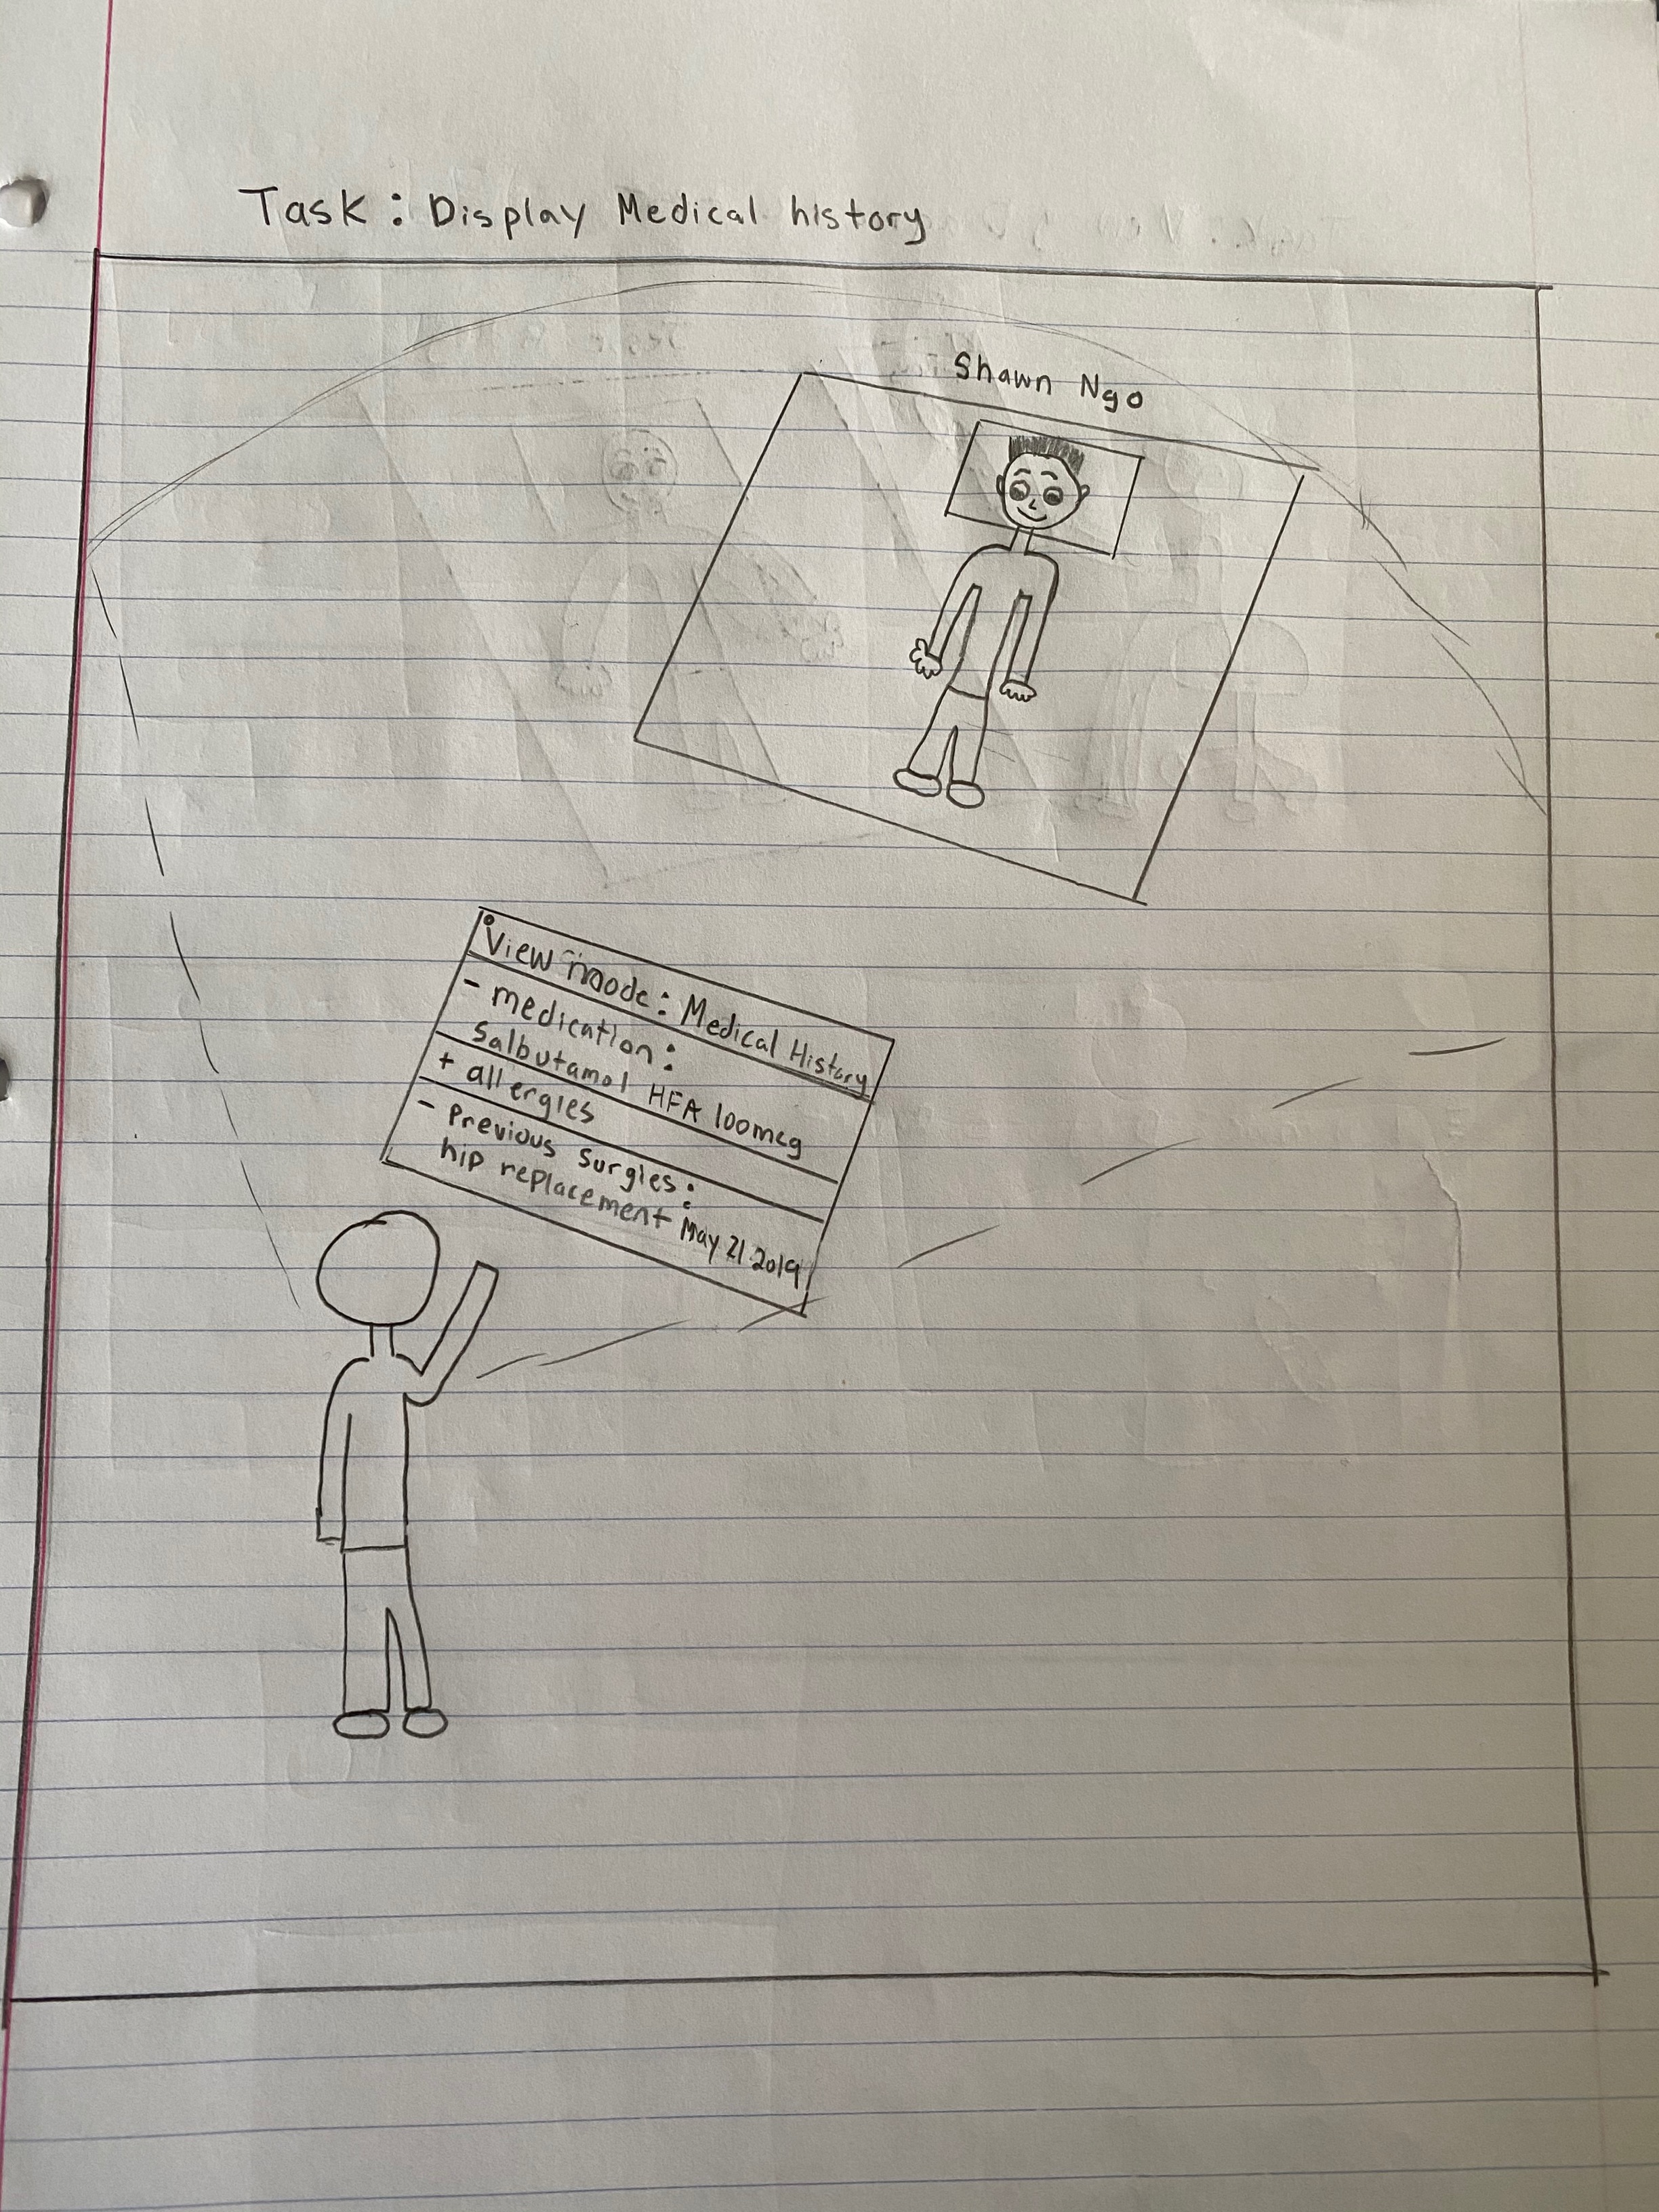 Task: Display Medical history
Shawn Ngo
View mode: Medical History
- medication:
Salbutamol HFA 100mcg
+ allergies
- Previous surgies:
hip replacement May 21 2019